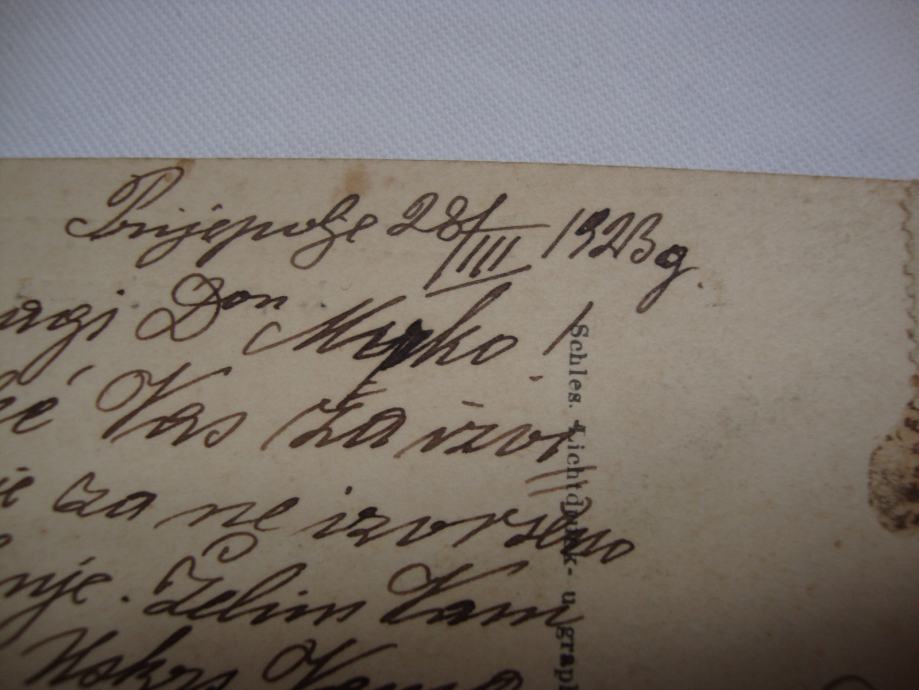 Prijepolje 28/III 1923 g.
agi Don Mirko!
Vas za izvi
je za ne izvršeno
nje. Želim Vam
Uskrs Vama
Schles. Lichtdruck- u. graph